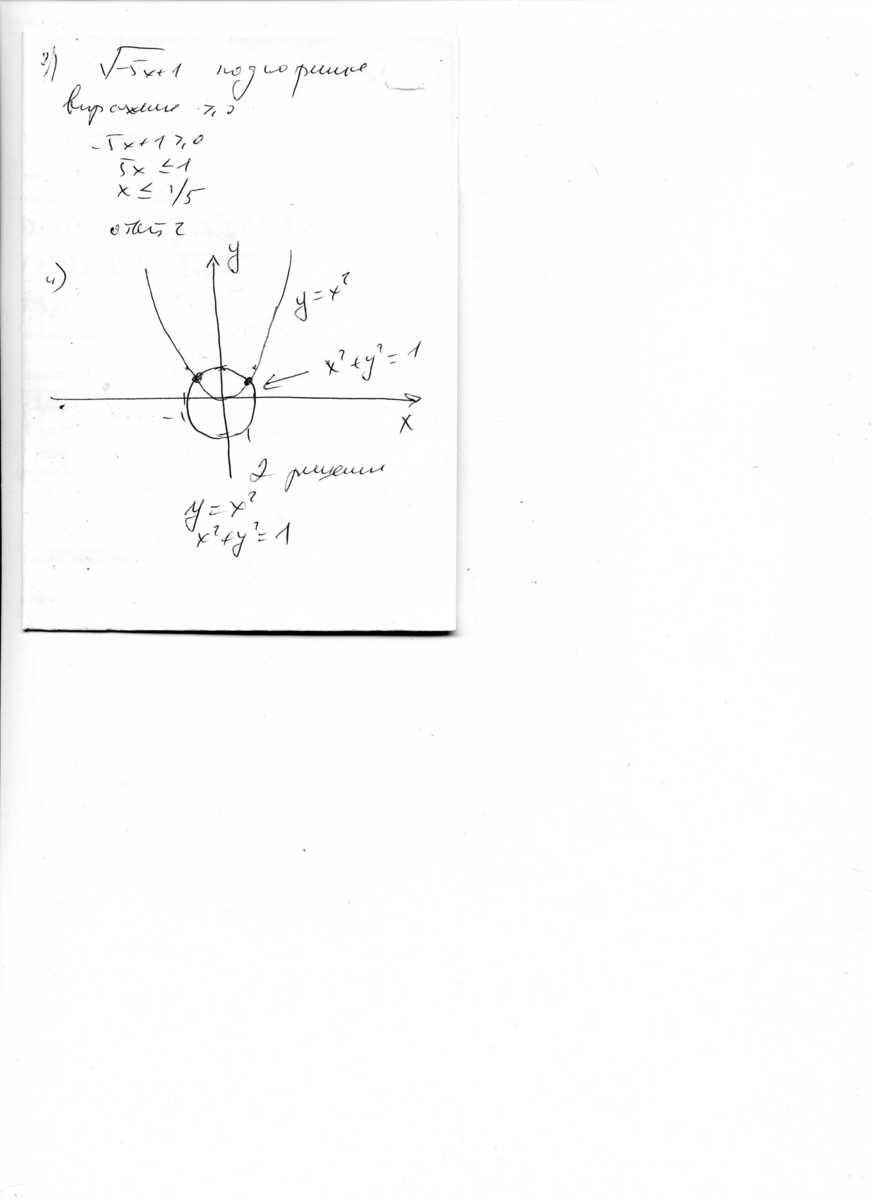 3) √-5x+1 подкоренное
выражение ≥ 0
-5x+1 ≥ 0
5x ≤ 1
x ≤ 1/5
ответ 2
4)
y
y = x²
x² + y² = 1
-1
1
x
2 решения
y = x²
x² + y² = 1